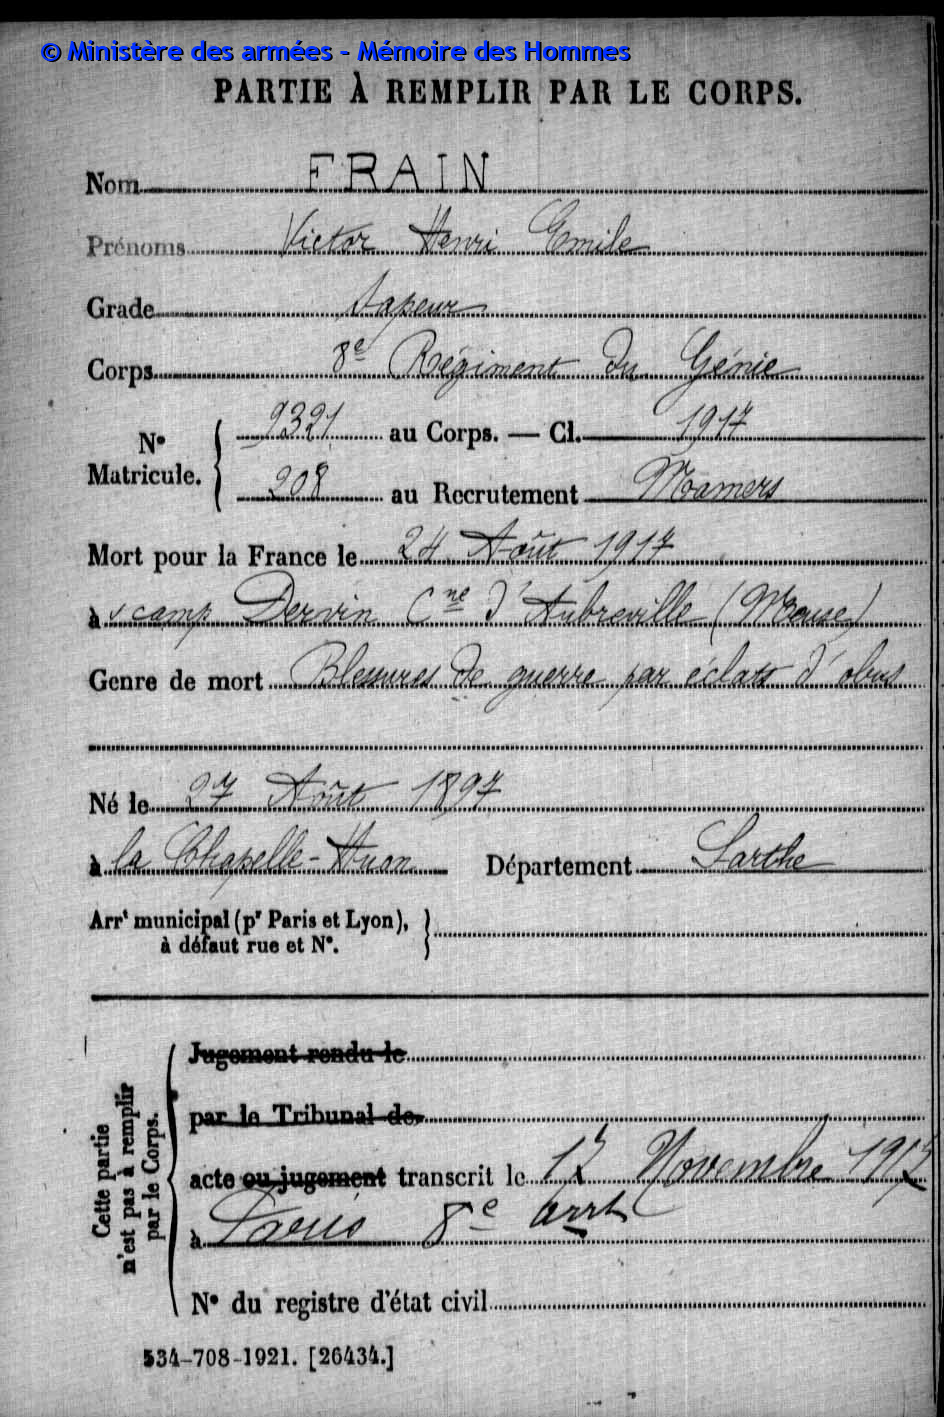 © Ministère des armées - Mémoire des Hommes
PARTIE À REMPLIR PAR LE CORPS.
Nom FRAIN
Prénoms Victor Henri Emile
Grade Sapeur
Corps 8e Régiment du Génie
N° Matricule. { 9321 au Corps. — Cl. 1917
208 au Recrutement Mamers
Mort pour la France le 24 Août 1917
à camp Dervin Cne d'Aubreville (Meuse)
Genre de mort Blessures de guerre par éclats d'obus
Né le 27 Août 1897
à la Chapelle-Huon Département Sarthe
Arrt municipal (pr Paris et Lyon),
à défaut rue et N°.
Cette partie n'est pas à remplir par le Corps.
Jugement rendu le
par le Tribunal de
acte ou jugement transcrit le 17 Novembre 1917
à Paris 8e arrt
N° du registre d'état civil
534-708-1921. [26434.]